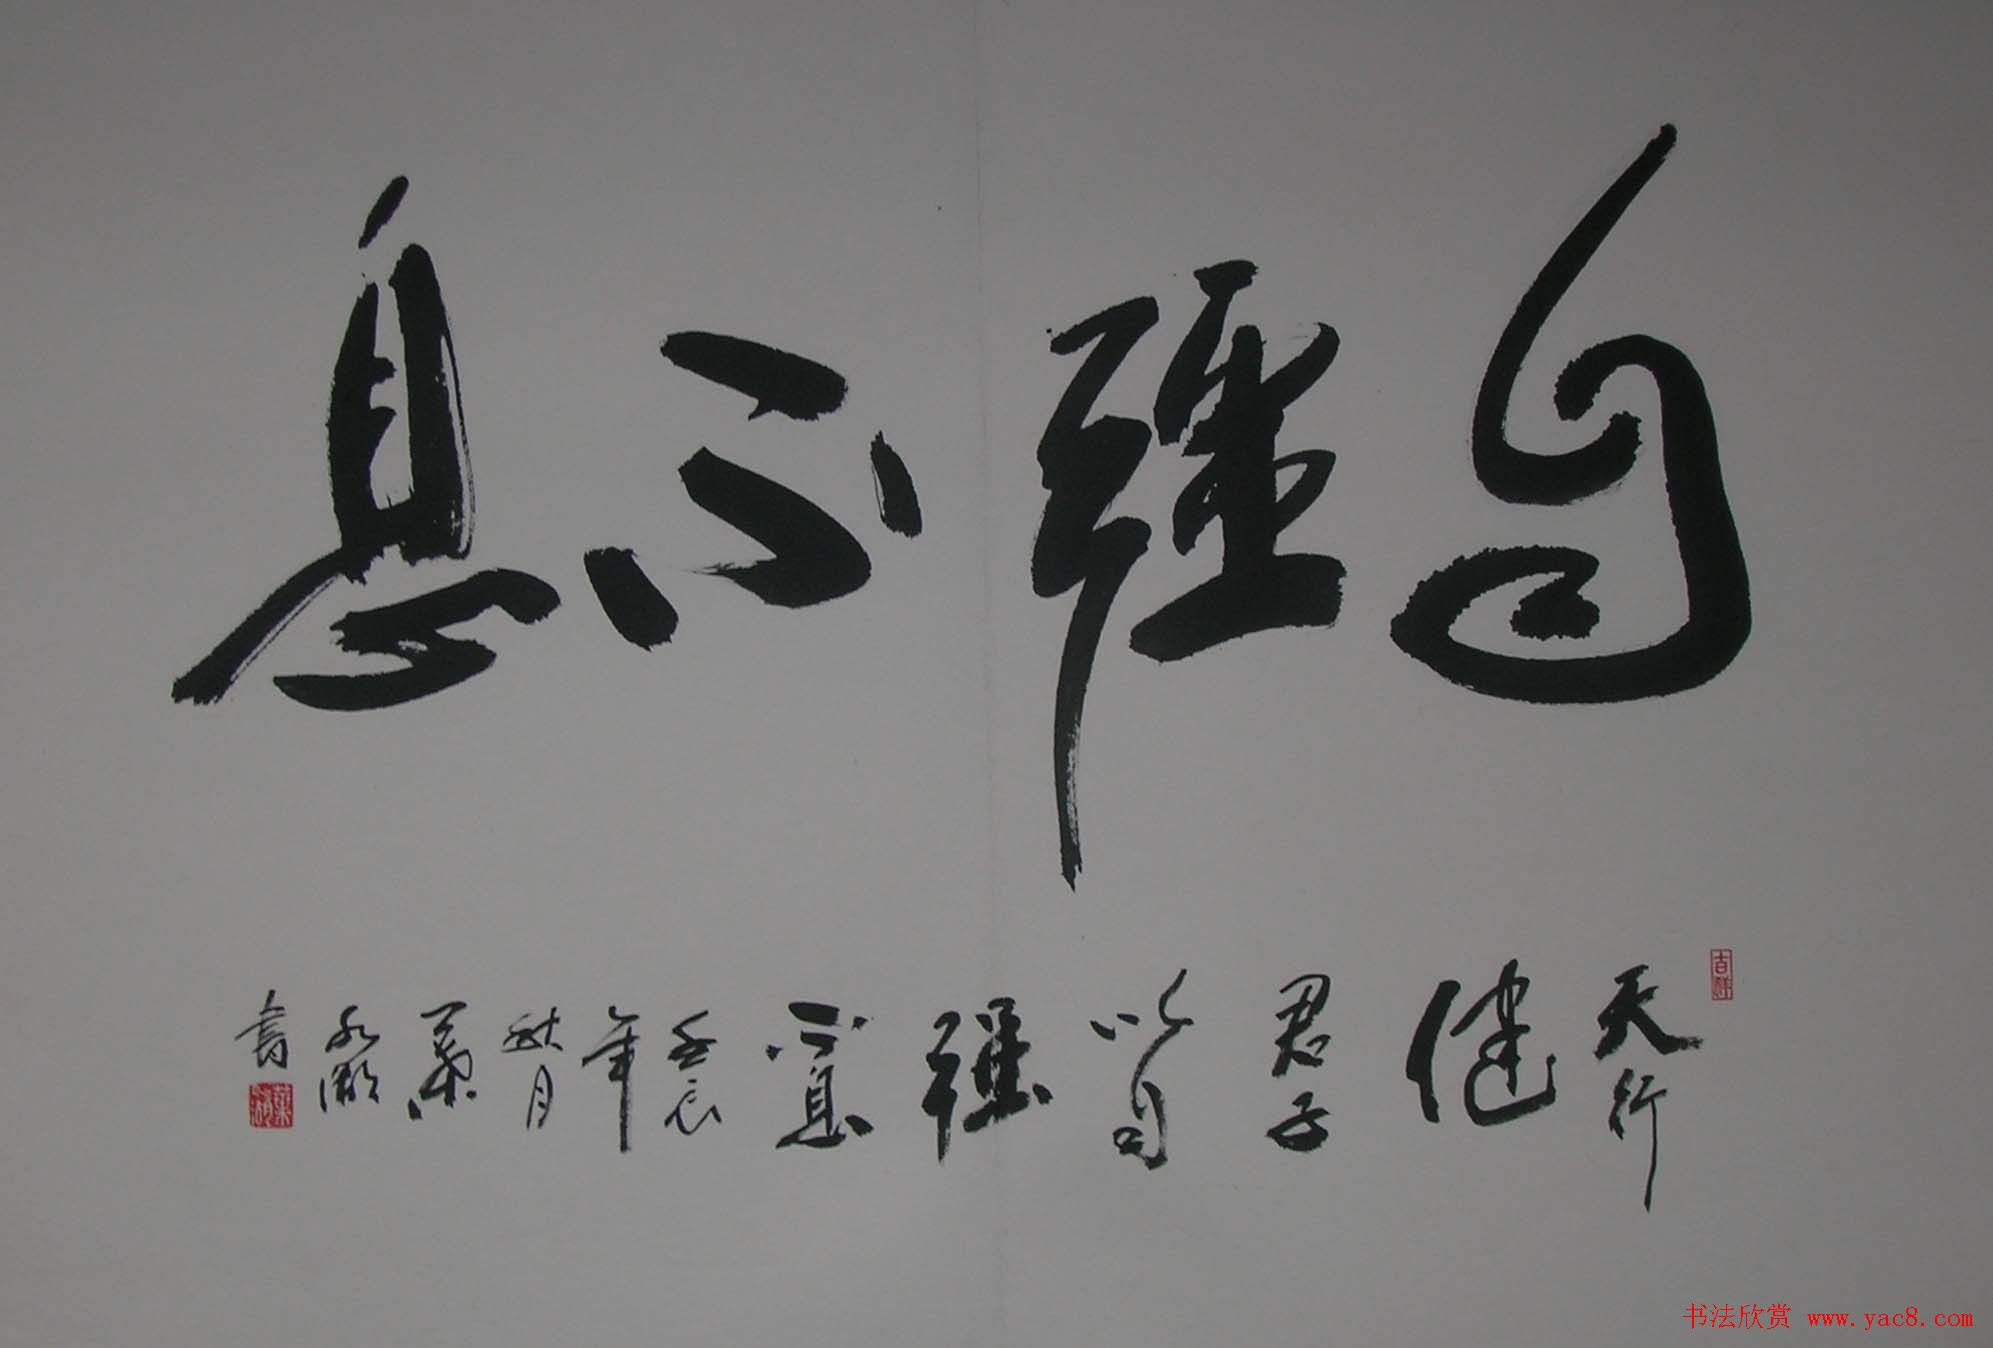 自强不息
天行
健
君子
以自
强
不息
壬辰
年
秋月
叶
永
书
书法欣赏 www.yac8.com